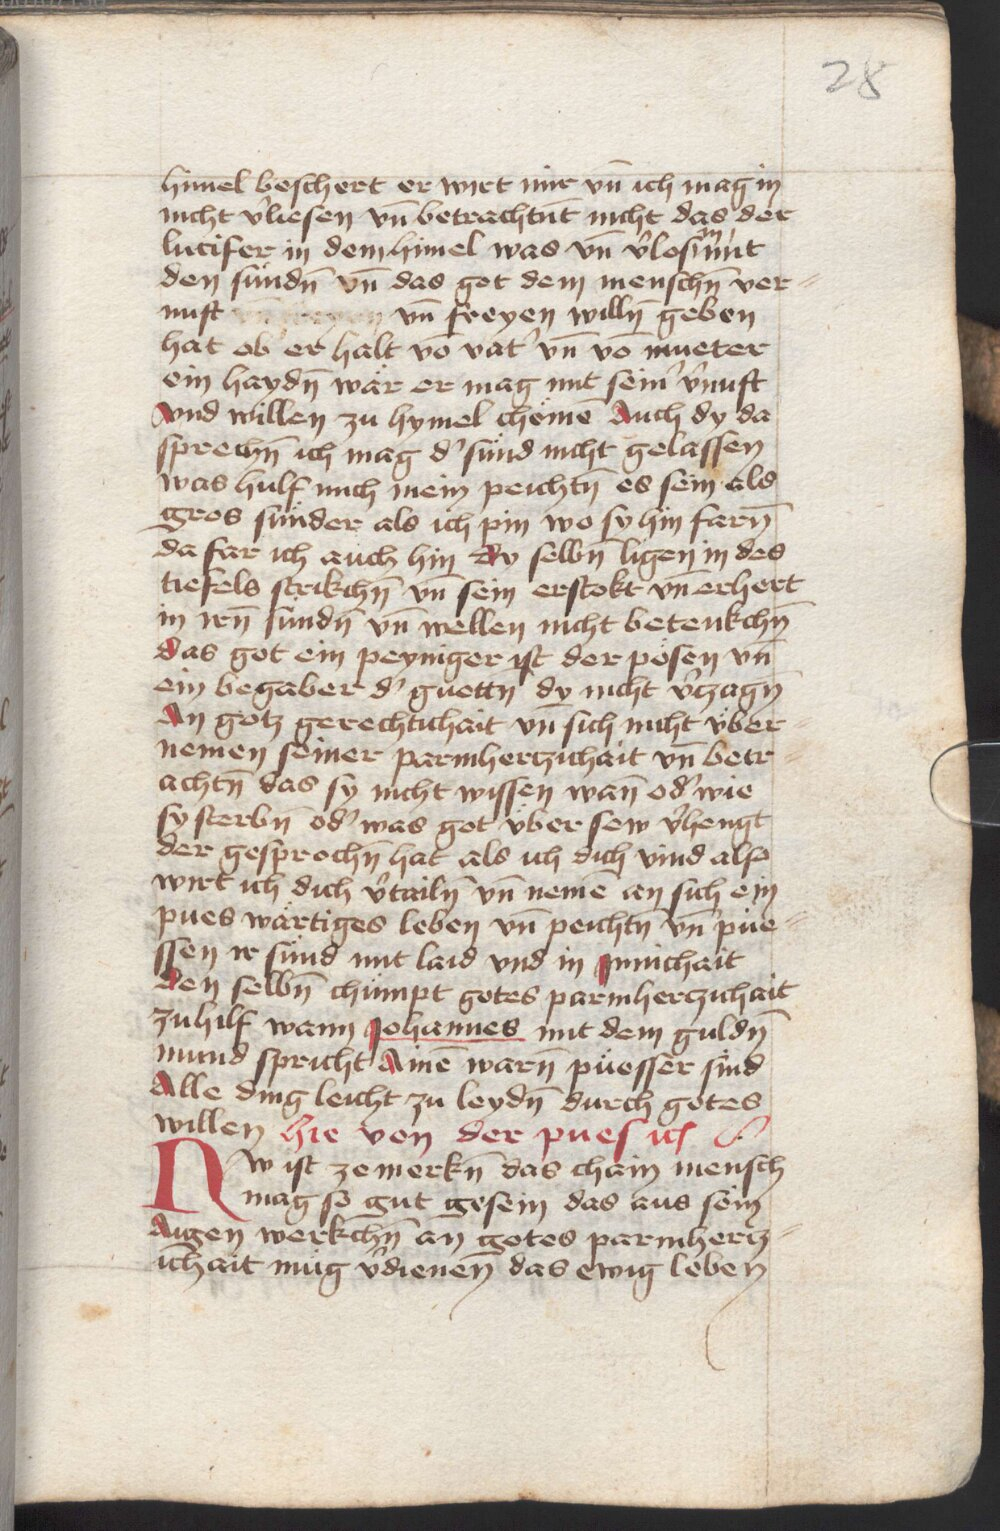 28
himel beschert er wirt mir vn̄ ich mag in
nicht v̓liesen vn̄ betrachtnt nicht das der
lucifer in dem himel was vn̄ v̓los in mit
den sündn̄ vn̄ das got dem menschn̄ ver-
nuft vn̄ freyen willn̄ geben
hat ob er halt vō vat̓ vn̄ vō mueter
ein haydn̄ wär er mag mit seim̓ v̓nuft
vnd willen zu hymel chömē Auch dy da
sprechn̄ ich mag d̓ sünd nicht gelassen
was hulf mich mein peichtn̄ es sein als
gros sünder als ich pin wo sy hin farn̄
da far ich auch hin Dy selbn̄ ligen in des
tiefels strikchn̄ vn̄ sein erstokt vn̄ erhert
in irn̄ sündn̄ vn̄ wellen nicht betenkchn̄
das got ein peyniger ist der pösen vn̄
ein begaber d̓ guettn̄ dy nicht v̓czagn̄
An gotz gerechtichait vn̄ sich nicht über-
nemen seiner parmhertzichait vn̄ betr-
achtn̄ das sy nicht wissen wan̄ od̓ wie
sy sterbn̄ od̓ was got über sew v̓hengt
der gesprochn̄ hat als ich dich vind also
wirt ich dich v̓tailn̄ vn̄ nemē an sich ein
pues wärtiges leben vn̄ peichtn̄ vn̄ püe-
ssen ir sünd mit laid vnd in Innichait
den selbn̄ chümpt gotes parmhertzichait
zu hilf wann Johannes mit dem guldn̄
mund spricht Ainē warn̄ püesser sind
Alle ding leicht zu leydn̄ durch gotes
willen hie von der pues ich
Nw ist ze merkn̄ das chain mensch
mag so gut gesein das aus sein
Aigen werkchn̄ an gotes parmhertz-
ichait müg v̓dienen̄ das ewig leben